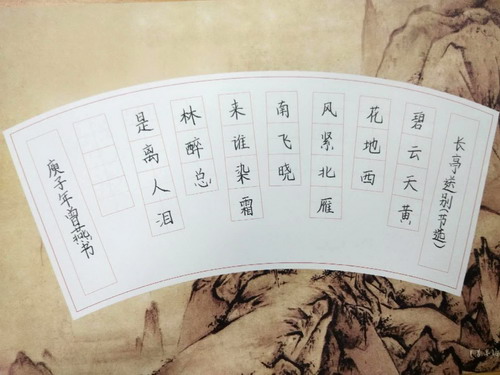 长亭送别(节选)
碧云天黄
花地西
风紧北雁
南飞晓
来谁染霜
林醉总
是离人泪
庚子年曾燕书